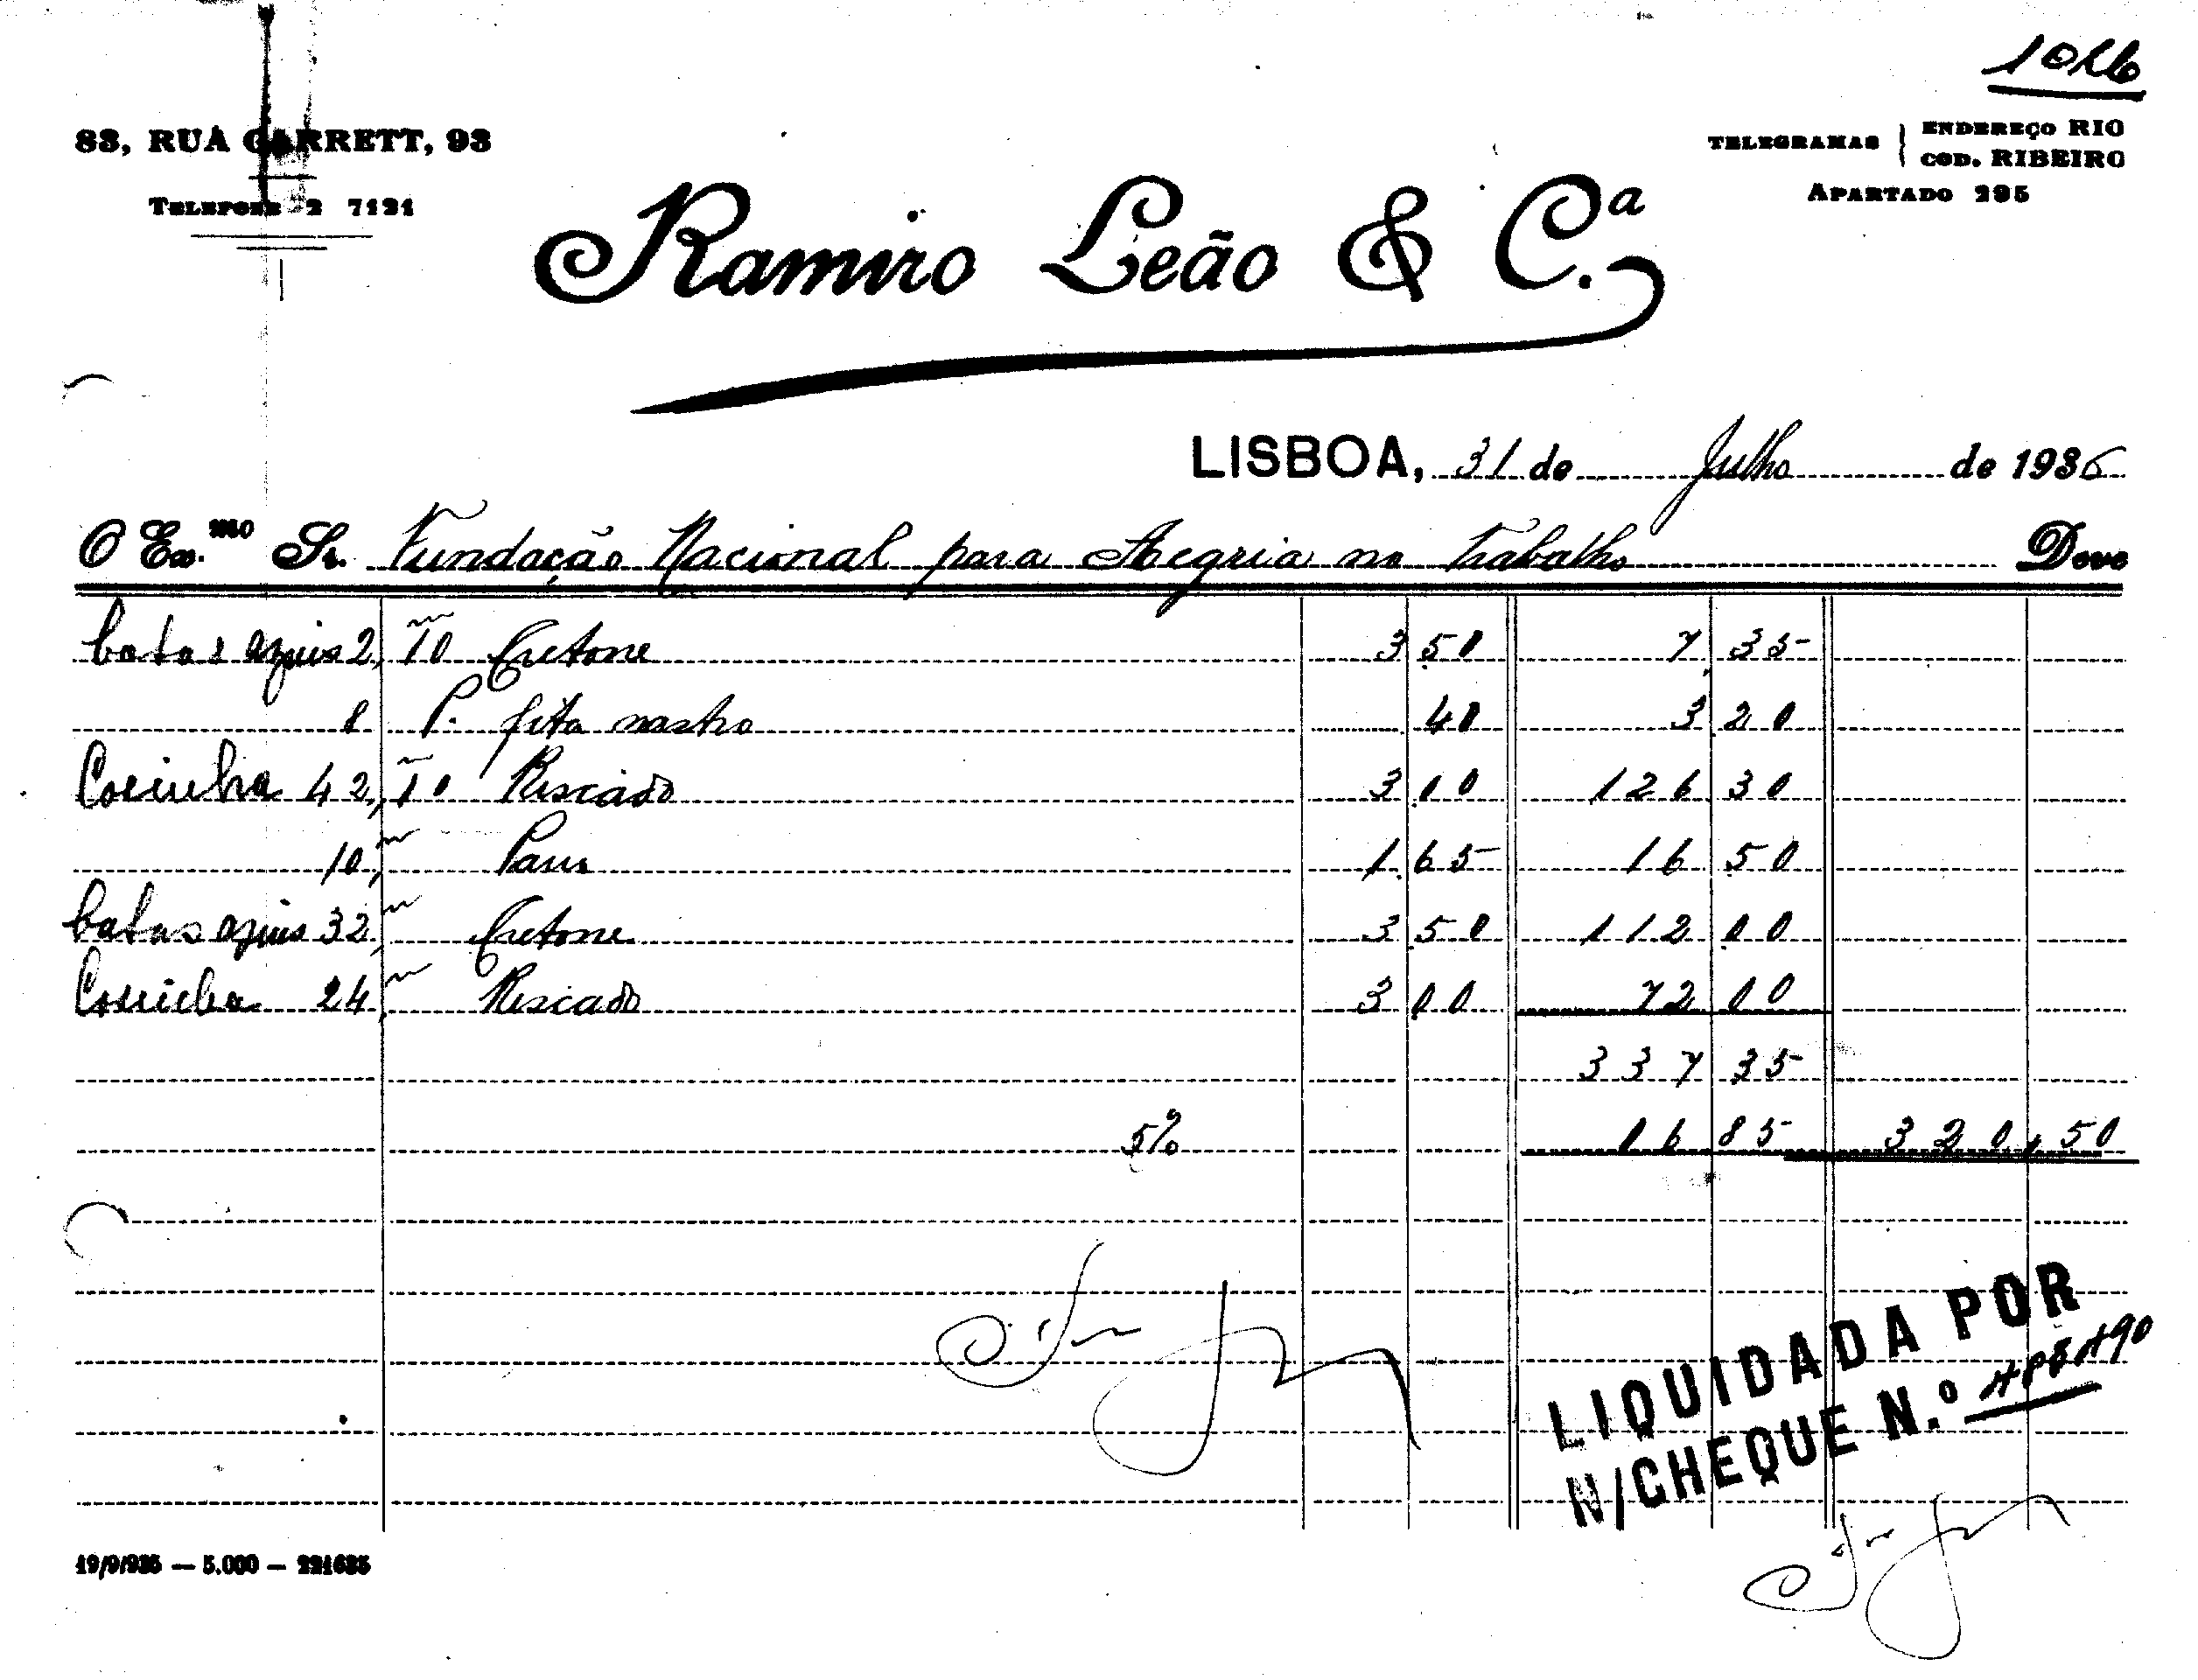 1026
83, RUA GARRETT, 93
TELEFONE 2 7121
TELEGRAMAS { ENDEREÇO RIO
COD. RIBEIRO
APARTADO 295
Ramiro Leão & C.ª
LISBOA, 31 de Julho de 1936
O Ex.mo Sr. Fundação Nacional para Alegria no Trabalho Deve
batas azuis 2,10 m Cretone 3 50 7 35
8 P. fita nastro 40 3 20
Cosinha 42,10 Riscado 3 00 126 30
10, m Pano 1 65 16 50
batas azuis 32, m Cretone 3 50 112 00
Cosinha 24, m Riscado 3 00 72 00
337 35
5% 16 85 320,50
LIQUIDADA POR
N/CHEQUE N.º
19/9/935 — 5.000 — 221635